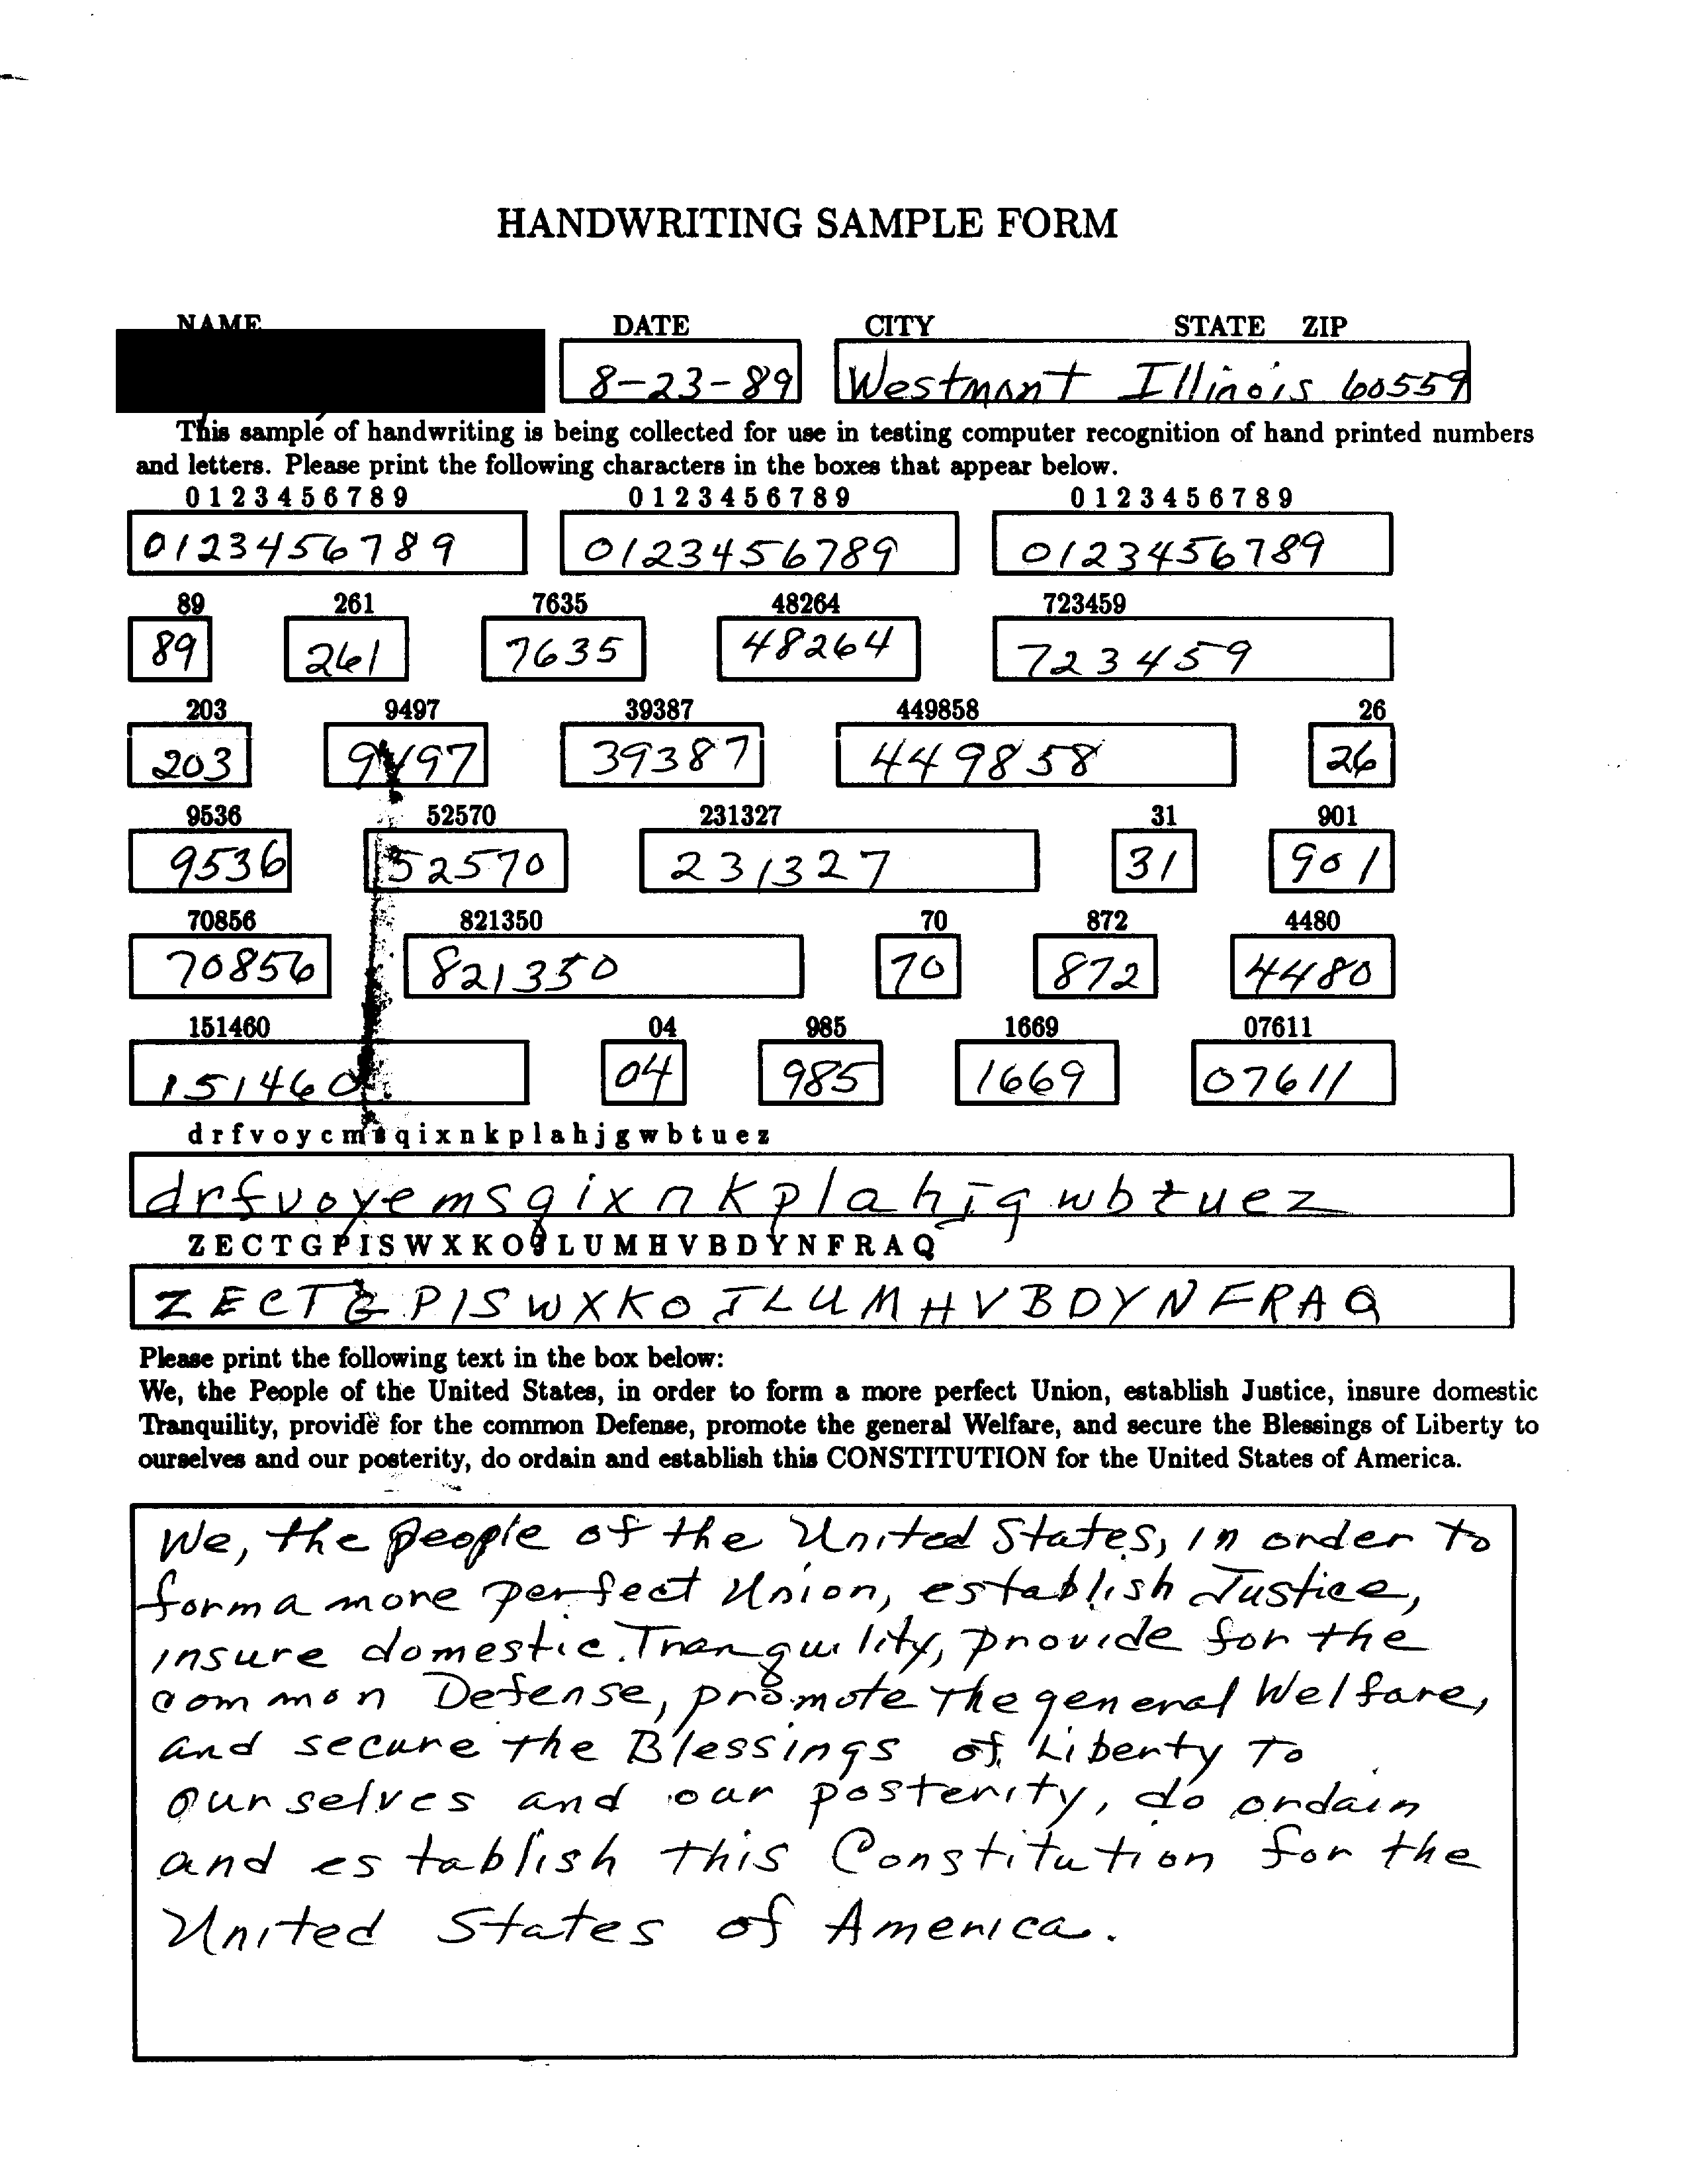 HANDWRITING SAMPLE FORM
NAME DATE CITY STATE ZIP
8-23-89 Westmont Illinois 60559
This sample of handwriting is being collected for use in testing computer recognition of hand printed numbers
and letters. Please print the following characters in the boxes that appear below.
0 1 2 3 4 5 6 7 8 9 0 1 2 3 4 5 6 7 8 9 0 1 2 3 4 5 6 7 8 9
0123456789 0123456789 0123456789
89 261 7635 48264 723459
89 261 7635 48264 723459
203 9497 39387 449858 26
203 9497 39387 449858 26
9536 52570 231327 31 901
9536 52570 231327 31 901
70856 821350 70 872 4480
70856 821350 70 872 4480
151460 04 985 1669 07611
151460 04 985 1669 07611
d r f v o y c m s q i x n k p l a h j g w b t u e z
d r f v o y e m s q i x n k p l a h j g w b t u e z
Z E C T G P I S W X K O J L U M H V B D Y N F R A Q
Z E C T G P I S W X K O J L U M H V B D Y N F R A Q
Please print the following text in the box below:
We, the People of the United States, in order to form a more perfect Union, establish Justice, insure domestic
Tranquility, provide for the common Defense, promote the general Welfare, and secure the Blessings of Liberty to
ourselves and our posterity, do ordain and establish this CONSTITUTION for the United States of America.
We, the people of the United States, in order to
form a more perfect Union, establish Justice,
insure domestic Tranquility, provide for the
common Defense, promote the general Welfare,
and secure the Blessings of Liberty to
ourselves and our posterity, do ordain
and establish this Constitution for the
United States of America.